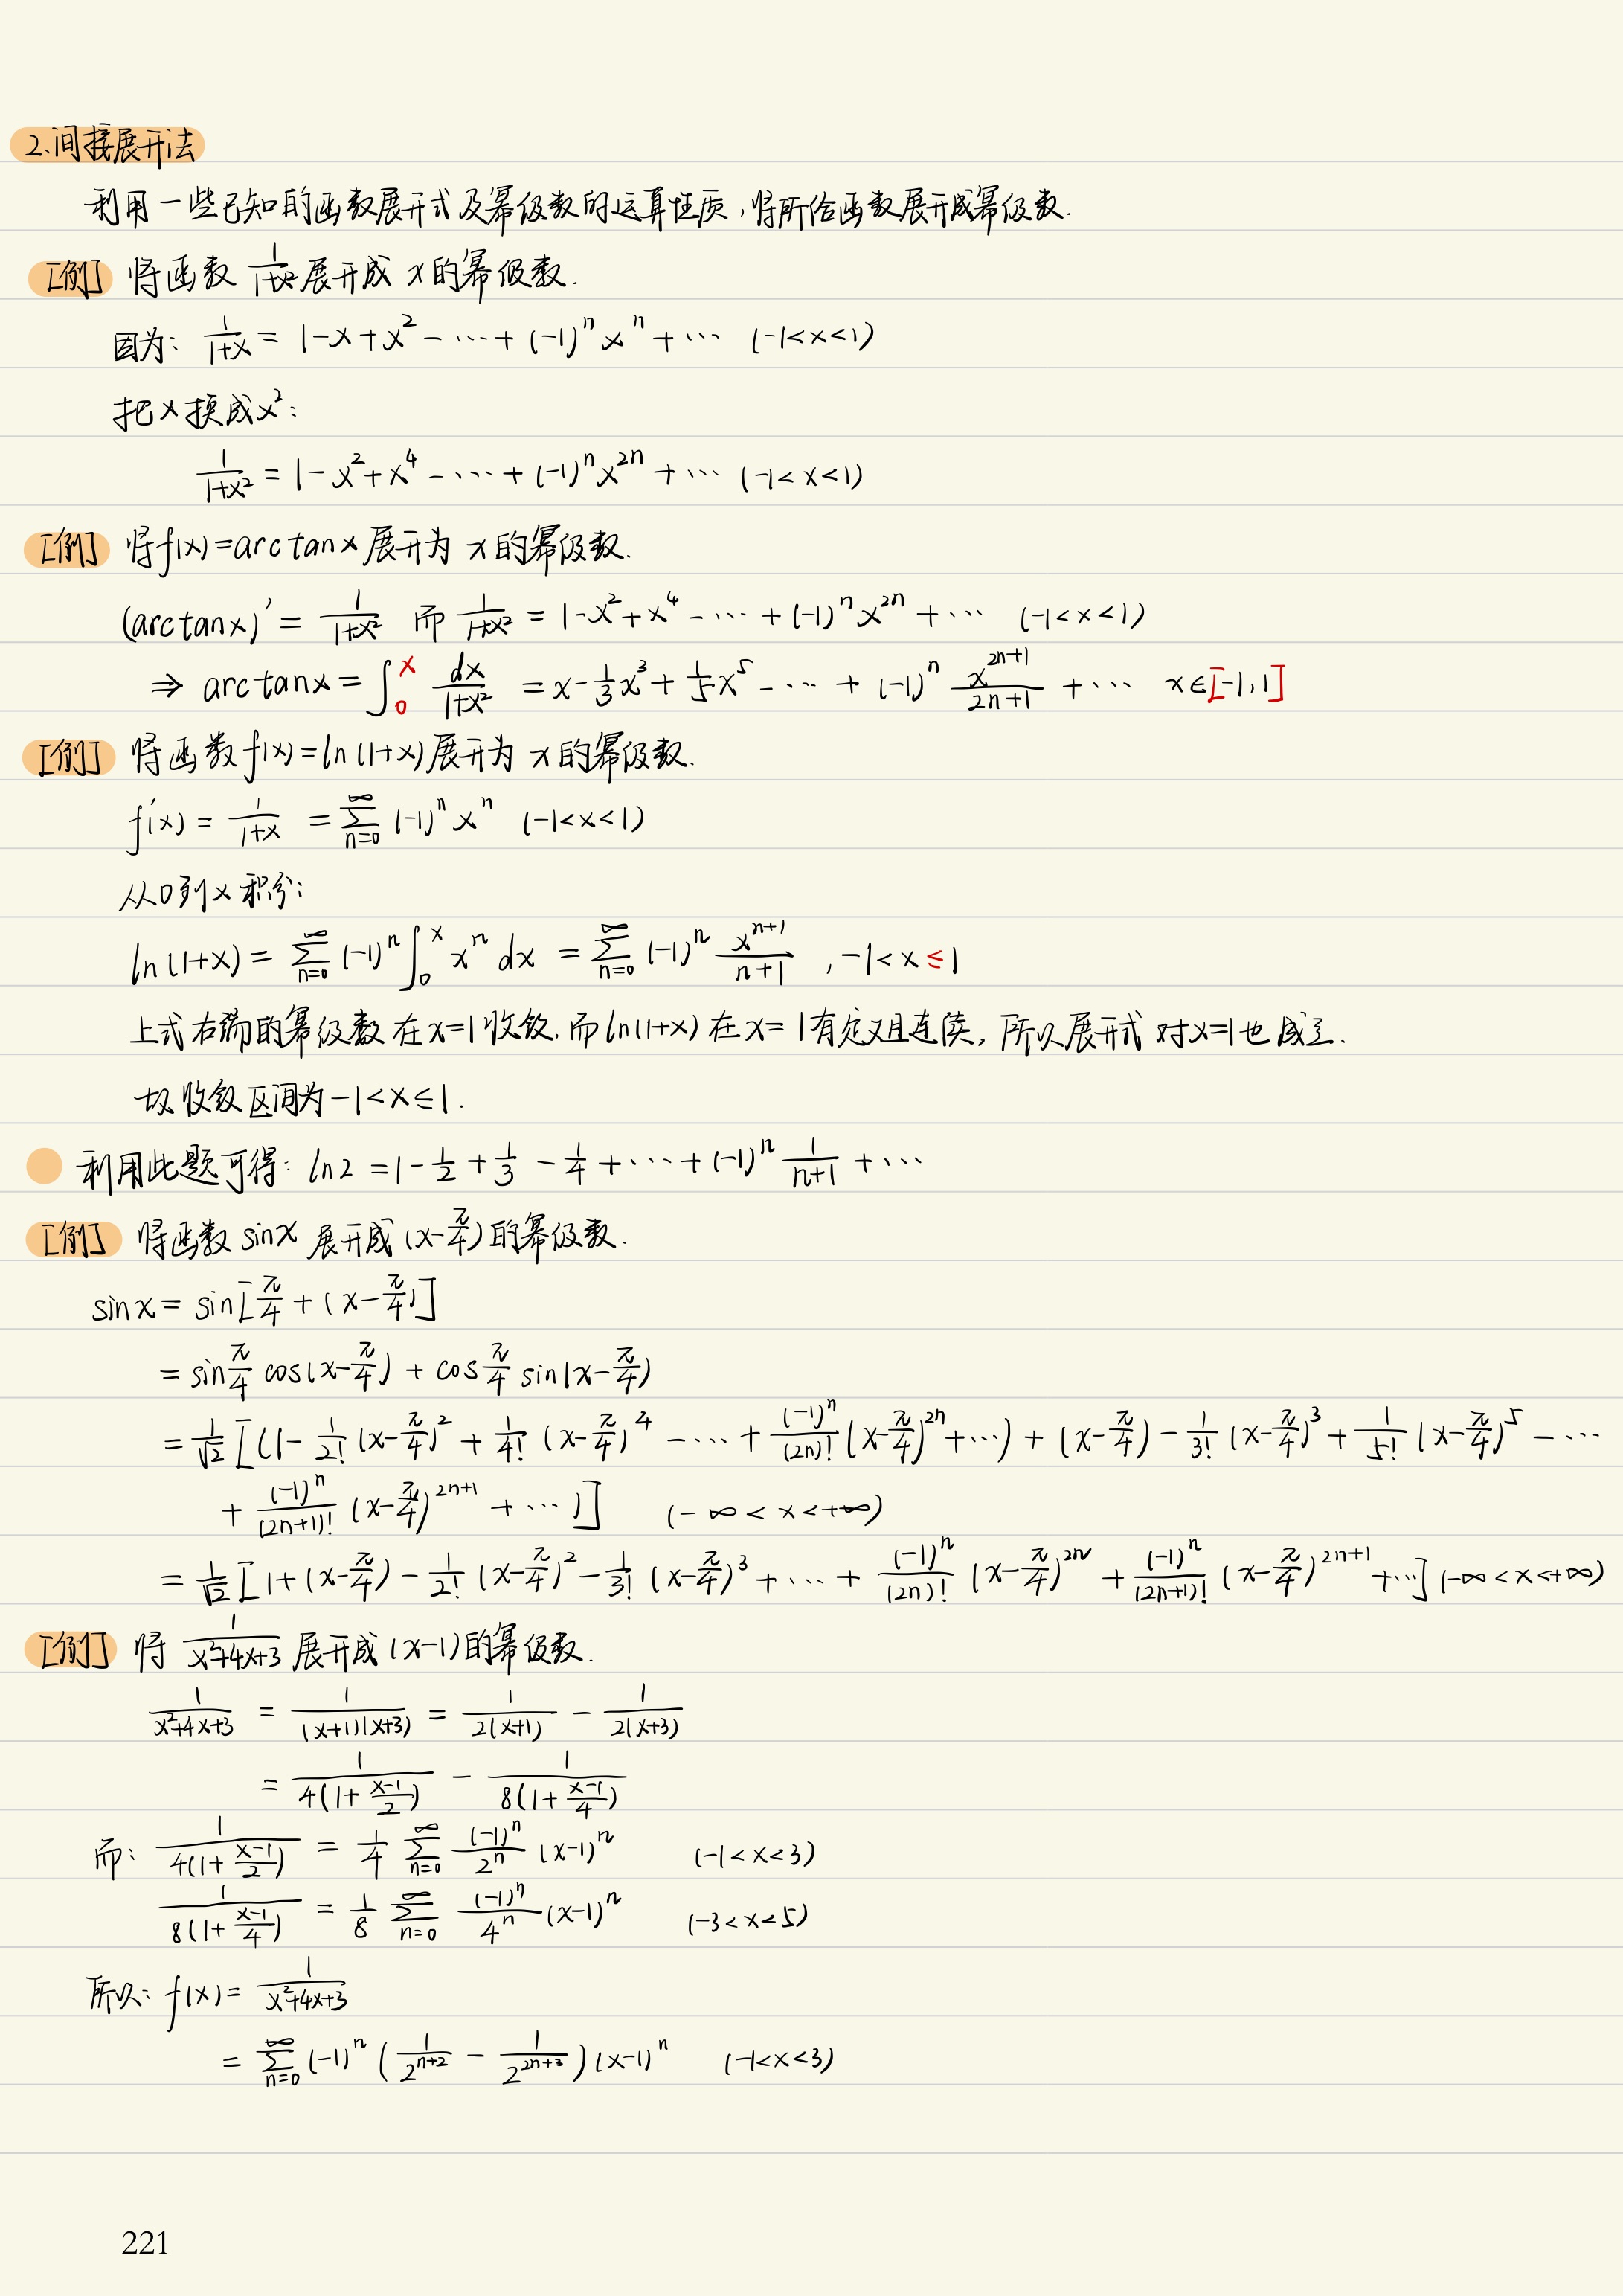 2、间接展开法
利用一些已知的函数展开式及幂级数的运算性质，将所给函数展开成幂级数.
[例] 将函数 \frac{1}{1+x^2} 展开成 x 的幂级数.
因为: \frac{1}{1+x} = 1-x+x^2-⋯+(-1)^n x^n+⋯ (-1<x<1)
把 x 换成 x^2:
\frac{1}{1+x^2} = 1-x^2+x^4-⋯+(-1)^n x^{2n}+⋯ (-1<x<1)
[例] 将f(x)=arctanx 展开为 x 的幂级数.
(arctanx)' = \frac{1}{1+x^2} 而 \frac{1}{1+x^2} = 1-x^2+x^4-⋯+(-1)^n x^{2n}+⋯ (-1<x<1)
⇒ arctanx = \int_0^x \frac{dx}{1+x^2} = x-\frac{1}{3}x^3+\frac{1}{5}x^5-⋯+(-1)^n \frac{x^{2n+1}}{2n+1}+⋯ x∈[-1,1]
[例] 将函数 f(x)=ln(1+x) 展开为 x 的幂级数.
f'(x) = \frac{1}{1+x} = \sum_{n=0}^{∞} (-1)^n x^n (-1<x<1)
从0到x积分:
ln(1+x) = \sum_{n=0}^{∞} (-1)^n \int_0^x x^n dx = \sum_{n=0}^{∞} (-1)^n \frac{x^{n+1}}{n+1} , -1<x≤1
上式右端的幂级数在x=1收敛,而ln(1+x)在x=1有定义且连续,所以展开式对x=1也成立.
故收敛区间为-1<x≤1.
利用此题可得: ln2 = 1-\frac{1}{2}+\frac{1}{3}-\frac{1}{4}+⋯+(-1)^n \frac{1}{n+1}+⋯
[例] 将函数 sinx 展开成 (x-\frac{π}{4}) 的幂级数.
sinx = sin[\frac{π}{4}+(x-\frac{π}{4})]
= sin\frac{π}{4} cos(x-\frac{π}{4}) + cos\frac{π}{4} sin(x-\frac{π}{4})
= \frac{1}{\sqrt{2}} [(1-\frac{1}{2!}(x-\frac{π}{4})^2+\frac{1}{4!}(x-\frac{π}{4})^4-⋯+\frac{(-1)^n}{(2n)!}(x-\frac{π}{4})^{2n}+⋯)+(x-\frac{π}{4})-\frac{1}{3!}(x-\frac{π}{4})^3+\frac{1}{5!}(x-\frac{π}{4})^5-⋯
+\frac{(-1)^n}{(2n+1)!}(x-\frac{π}{4})^{2n+1}+⋯)] (-∞<x<+∞)
= \frac{1}{\sqrt{2}} [1+(x-\frac{π}{4})-\frac{1}{2!}(x-\frac{π}{4})^2-\frac{1}{3!}(x-\frac{π}{4})^3+⋯+\frac{(-1)^n}{(2n)!}(x-\frac{π}{4})^{2n}+\frac{(-1)^n}{(2n+1)!}(x-\frac{π}{4})^{2n+1}+⋯] (-∞<x<+∞)
[例] 将 \frac{1}{x^2+4x+3} 展开成 (x-1) 的幂级数.
\frac{1}{x^2+4x+3} = \frac{1}{(x+1)(x+3)} = \frac{1}{2(x+1)} - \frac{1}{2(x+3)}
= \frac{1}{4(1+\frac{x-1}{2})} - \frac{1}{8(1+\frac{x-1}{4})}
而: \frac{1}{4(1+\frac{x-1}{2})} = \frac{1}{4} \sum_{n=0}^{∞} \frac{(-1)^n}{2^n} (x-1)^n (-1<x<3)
\frac{1}{8(1+\frac{x-1}{4})} = \frac{1}{8} \sum_{n=0}^{∞} \frac{(-1)^n}{4^n} (x-1)^n (-3<x<5)
所以: f(x) = \frac{1}{x^2+4x+3}
= \sum_{n=0}^{∞} (-1)^n (\frac{1}{2^{n+2}} - \frac{1}{2^{2n+3}}) (x-1)^n (-1<x<3)
221